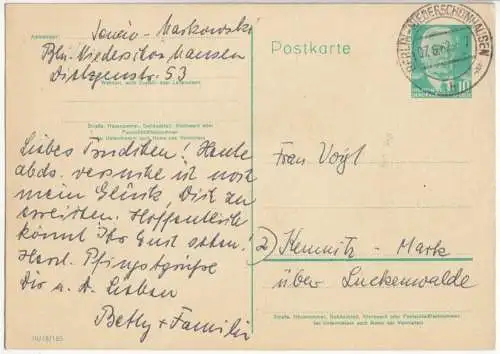 Absender:
Markowski
Bln.-Niederschönhausen
Dietzgenstr. 53
Wohnort, auch Zustell- oder Leitpostamt
Straße, Hausnummer, Gebäudeteil, Stockwerk oder
Postschließfachnummer
bei Untermietern auch Name des Vermieters
Liebes Trudchen! Heute
abds. versuche ich noch
mein Glück, Dich zu
erreichen. Hoffentlich
könnt Ihr Gust sehen!
Herzl. Pfingstgrüße
Dir u. d. Lieben
Betty + Familie
III/18/185
Postkarte
BERLIN-NIEDERSCHÖNHAUSEN
10
Frau Voigt
Kemnitz - Mark
über Luckenwalde
Straße, Hausnummer, Gebäudeteil, Stockwerk oder Postschließfachnummer
bei Untermietern auch Name des Vermieters